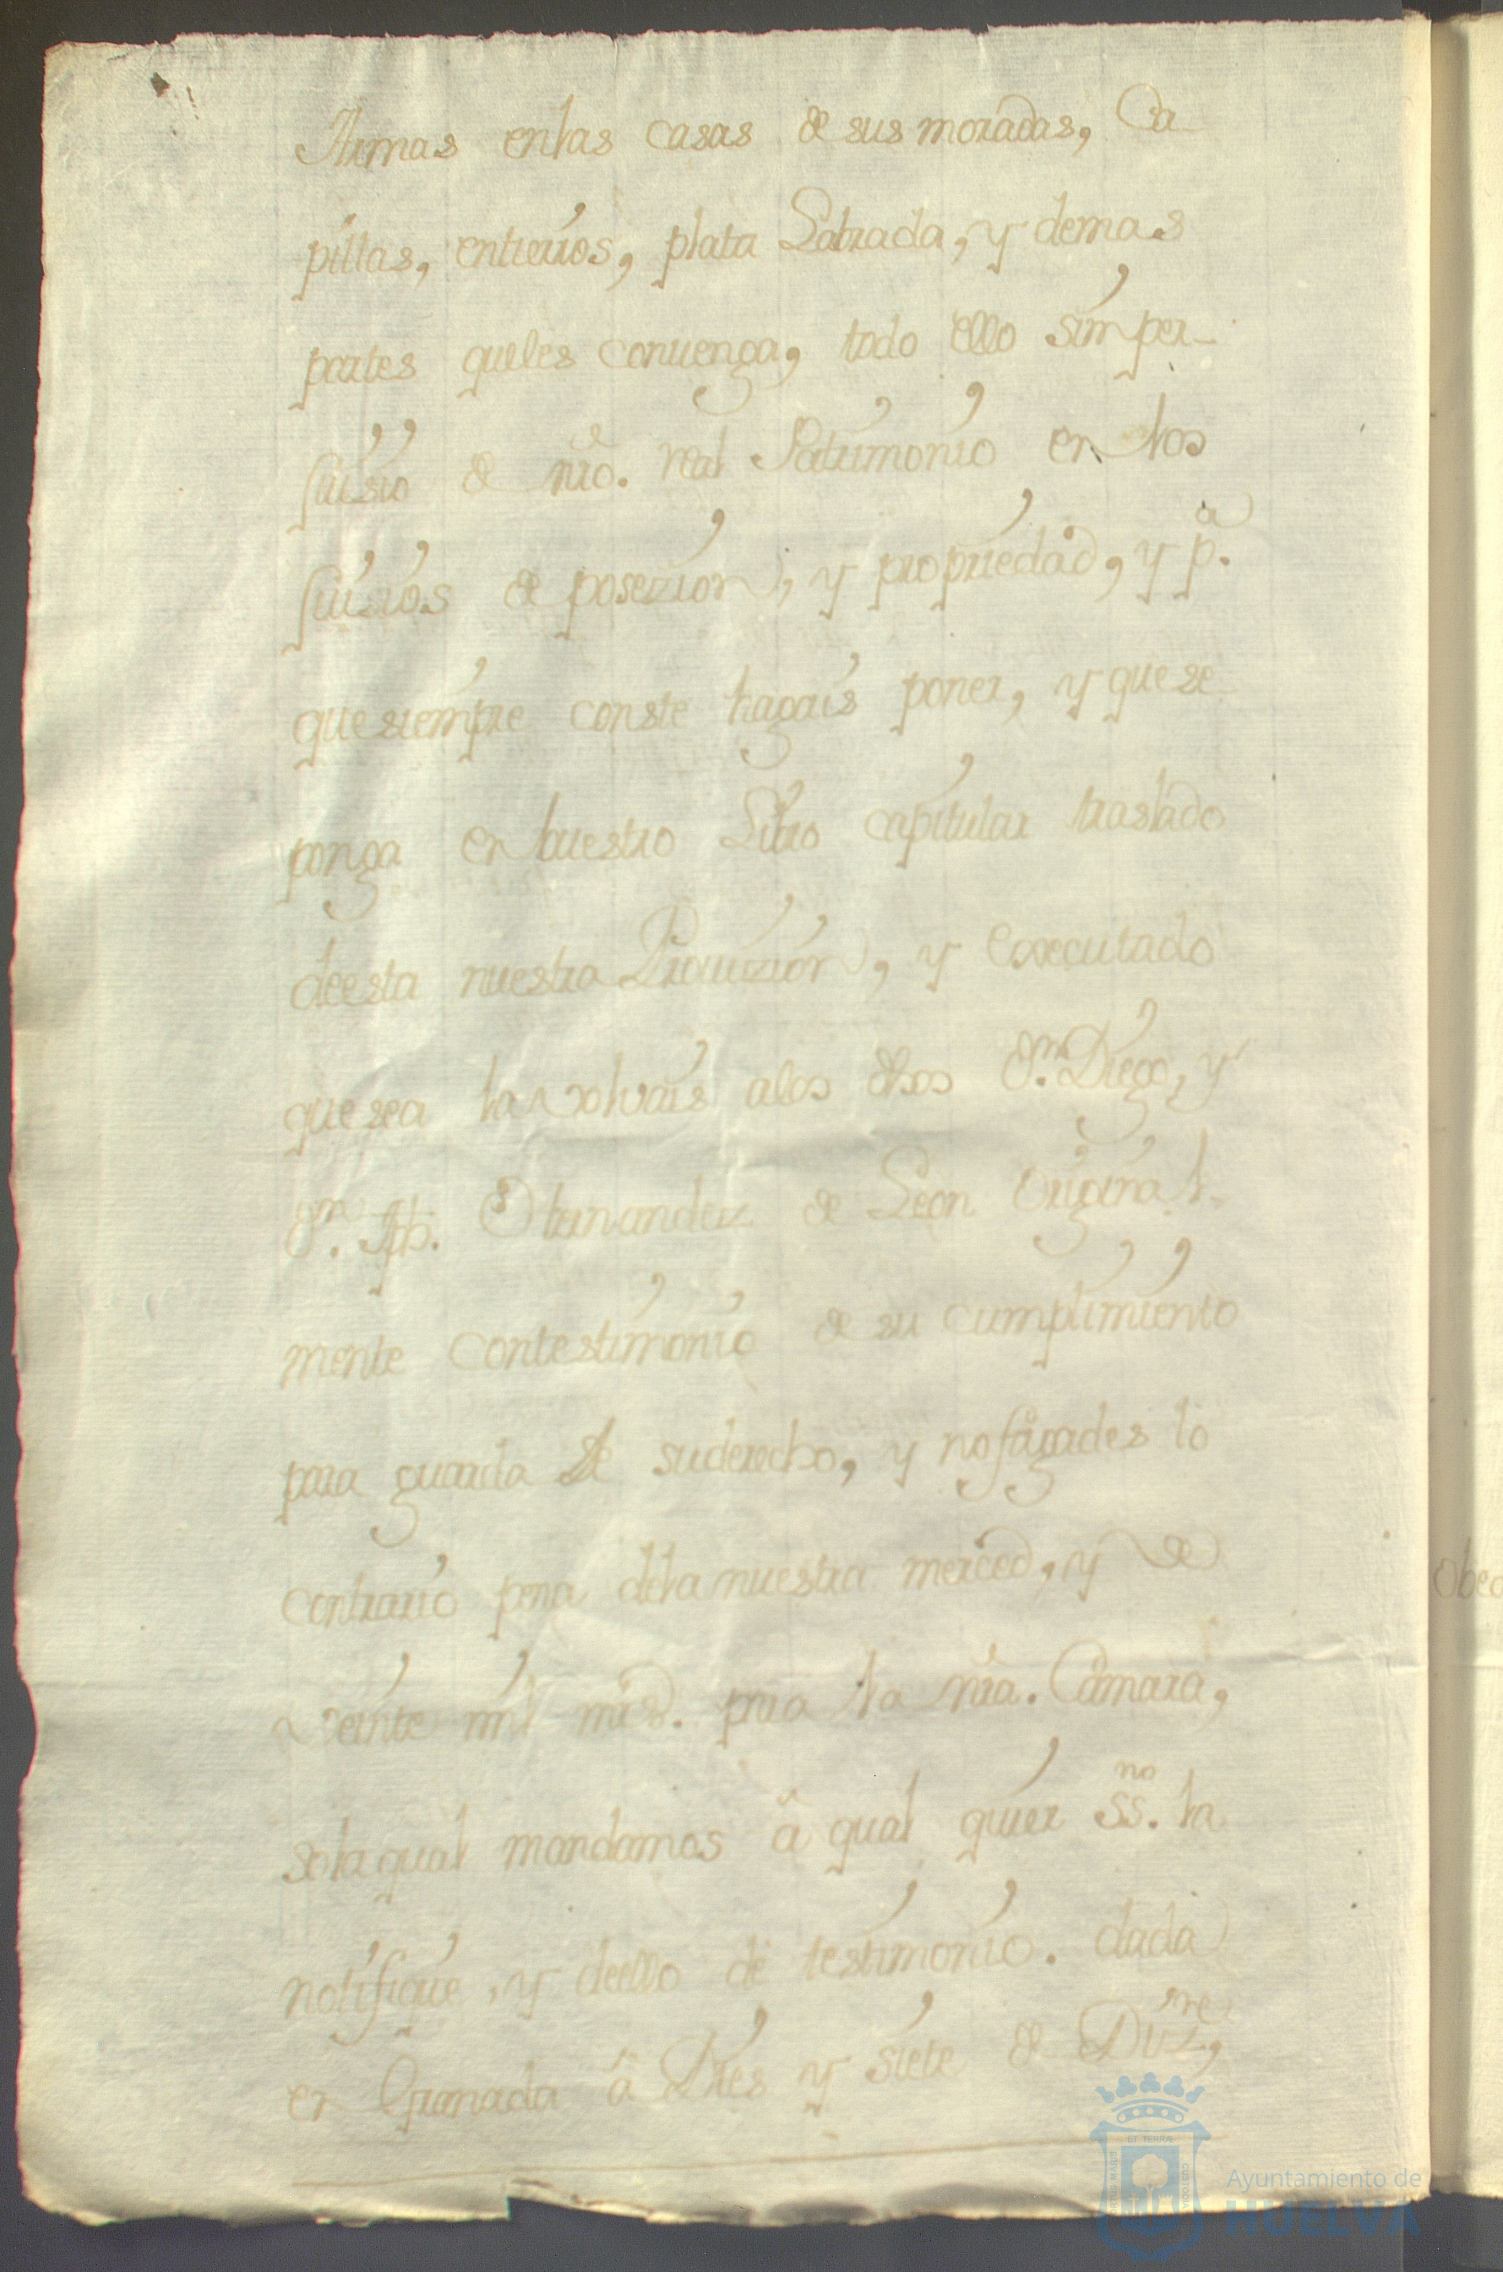 Armas enlas casas de sus moradas, Ca-
pillas, entierros, plata Labrada, y demas
partes queles convenga, todo ello sin per-
juisio de nro. real Patrimonio en los
juizios de posezion, y propriedad, y pa.
que siempre conste hagais poner, y que se
ponga en buestro Libro capitular traslado
deesta nuestra Provizion, y executado
que sea la volvais alos dhos Dn. Diego, y
Dn. Jph. Hernandez de Leon Original-
mente contestimonio de su cumplimiento
para guarda de suderecho, y nofagades lo
contrario pena dela nuestra merced, y de
veinte mil mrs. para la nra. Camara,
sola qual mandamos â qual quier ssno. la
notifique, y deello dé testimonio. dada
en Granada â Dies y siete de Dizre,
obed
Ayuntamiento de
HUELVA